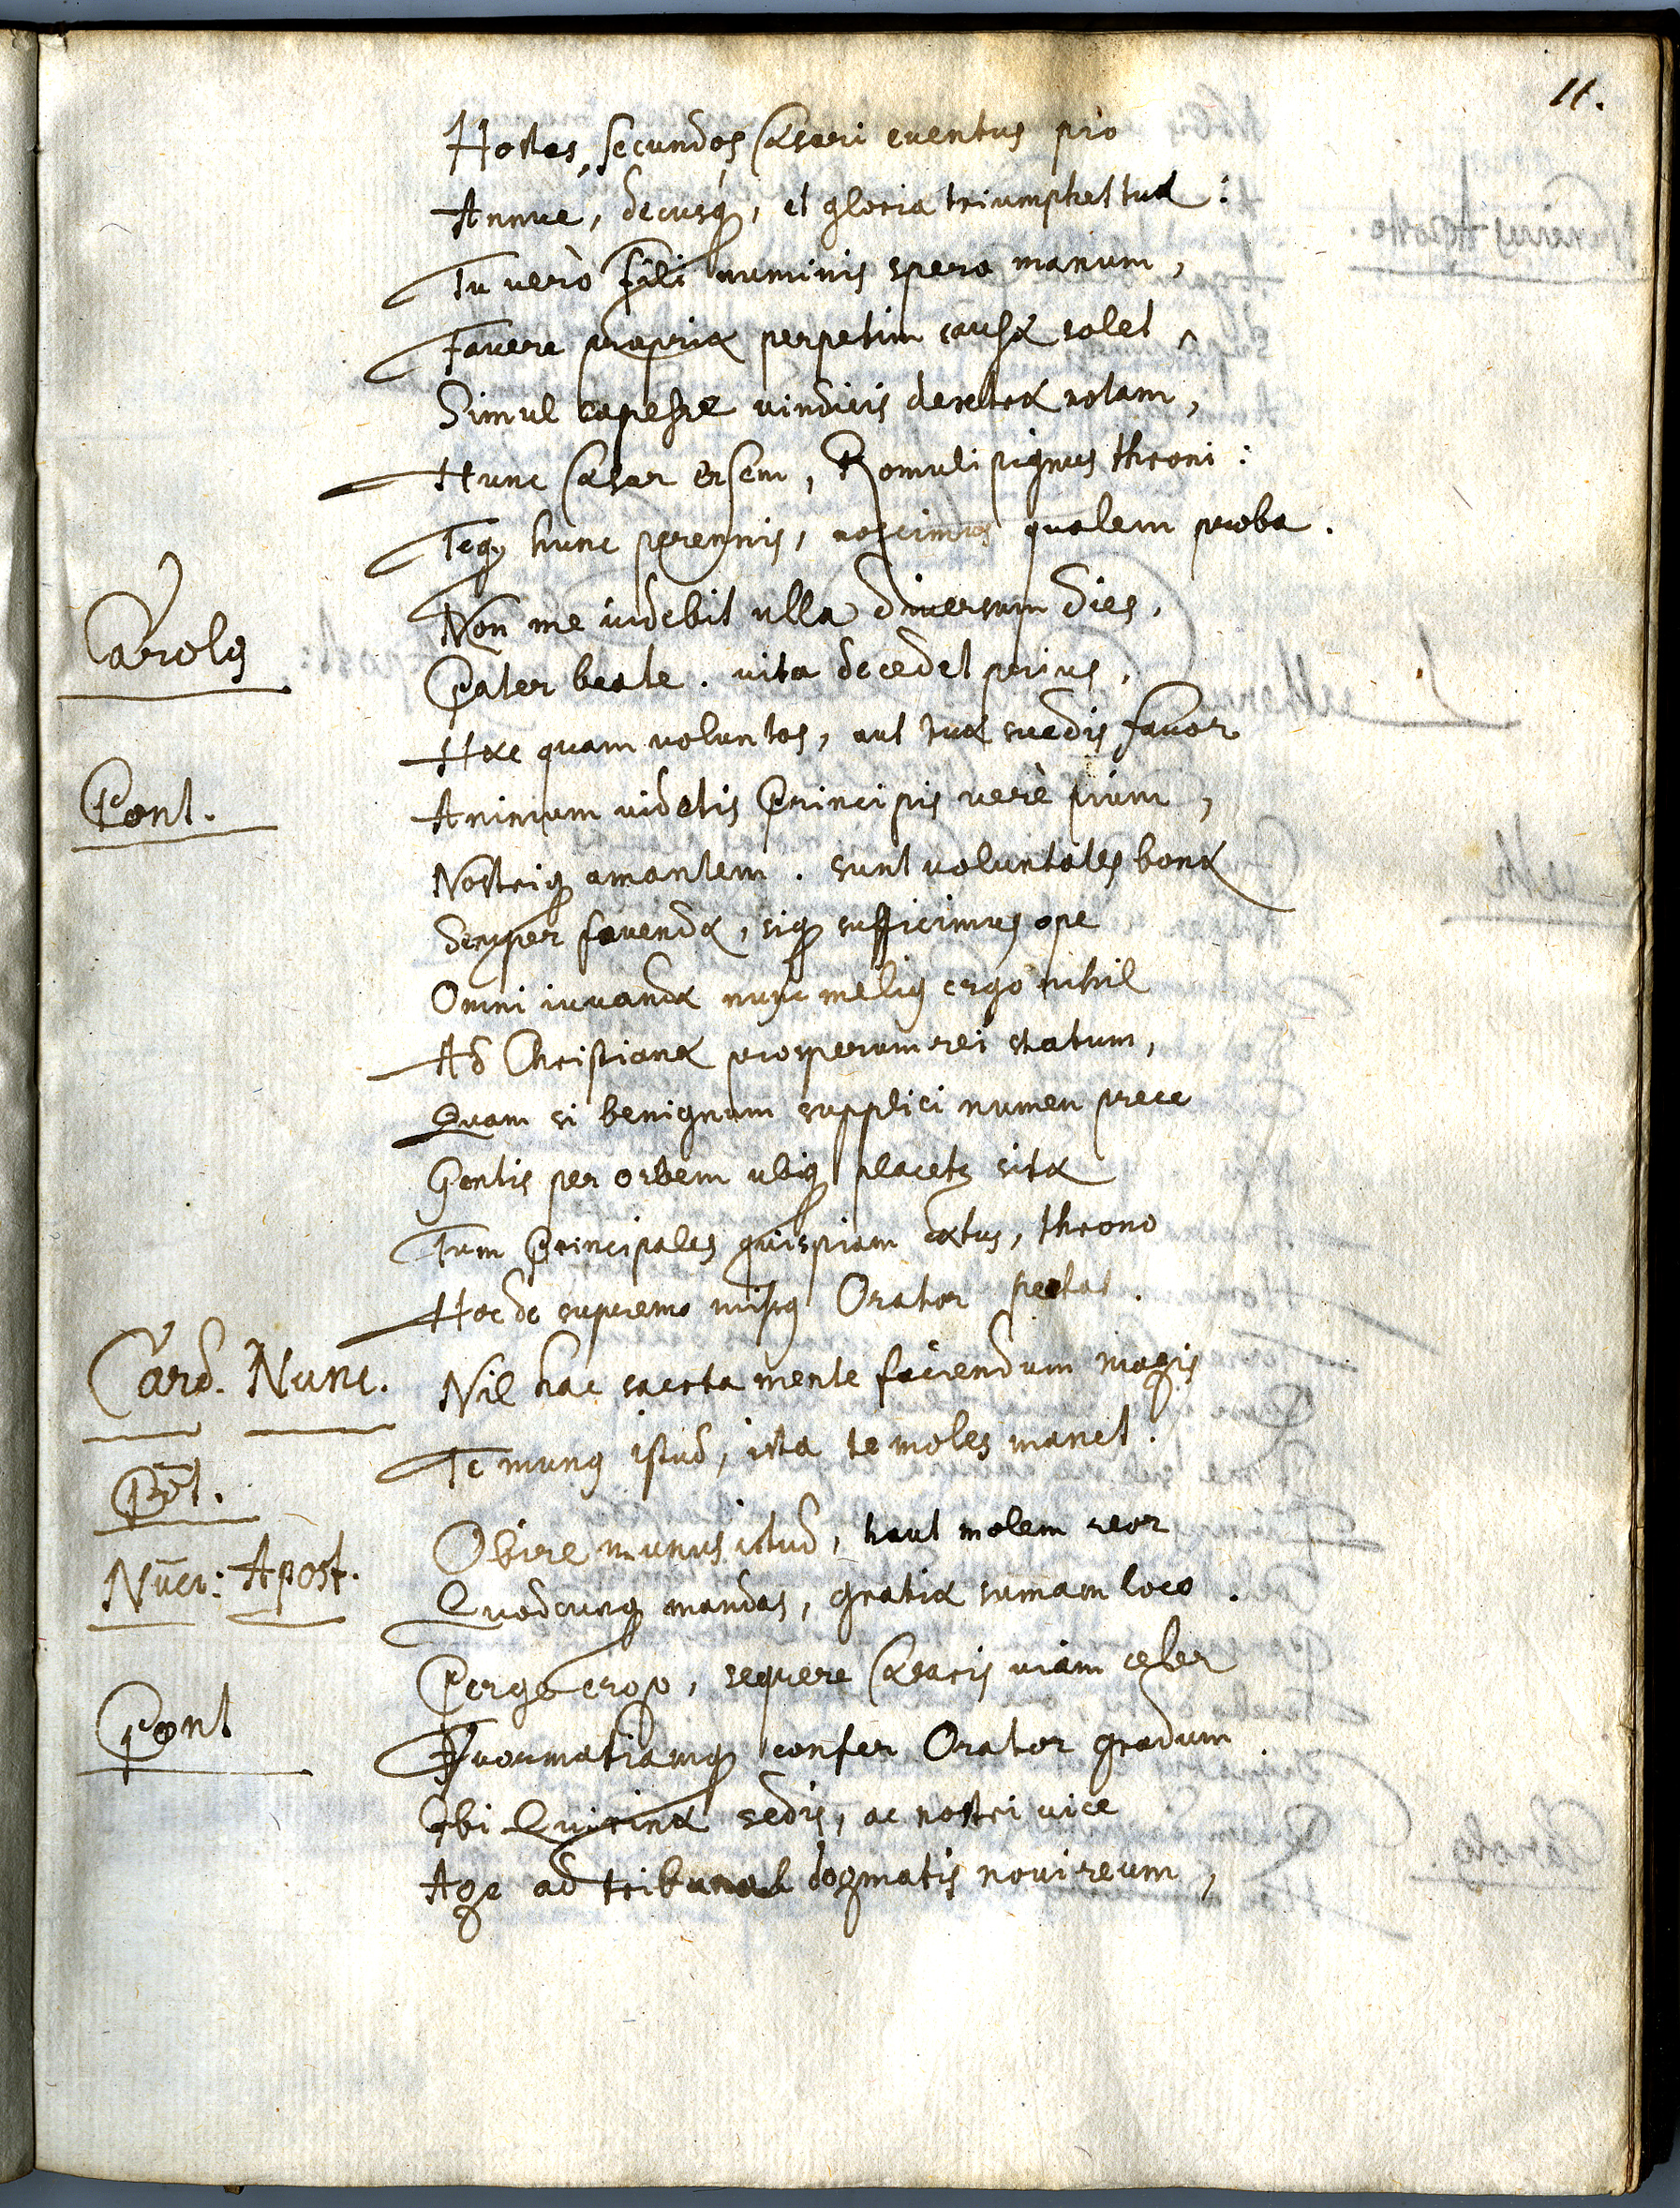 11.
Hostes, secundos Cæsari eventus pro
Annue, decusq, et gloria triumphet tuæ:
Tu verò fili numinis spera manum,
Favere propriæ perpetim causæ solet,
Simul capesse vindicis dextræ notam,
Hunc Cæsar ensem, Romuli pignus throni:
Teq hunc perennis, noscimus qualem proba.
Carolg
Non me videbit ulla diversum dies,
Pater beate. vita decedet prius,
Hæc quam voluntas, aut tuæ suedis favor
Pont.
Animum videtis Principis verè pium,
Nostriq amantem. sunt voluntates bonæ
Semper favendæ, siq sufficimus ope
Omni iuvandæ nunc melig ergo nihil
Ad Christianæ prosperum rei statum,
Quam si benignum supplici numen prece
Gentis per orbem ubiq placetg sitæ
Tum Principales quispiam cœtus, throno
Hoc de supremo missg Orator petat.
Card. Nunc.
Nil hac sacrta mente faciendum magis
Põt.
Te mung istud, ista te moles manet.
Nũcı: Apost.
Obire munus istud, haut molem reor
Quodcunq mandas, gratiæ sumam loco.
Pont
Perge ergo, sequere Cæsaris viam celer
Vvormatiamq confer Orator gradum.
Ibi Quirinæ sedis, ac nostri vice
Age ad tribunal dogmatis novi reum,